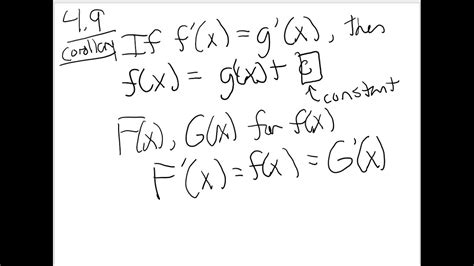 4.9
corollary If f'(x) = g'(x), then
f(x) = g'(x) + C
↑ constant
F(x), G(x) for f(x)
F'(x) = f(x) = G'(x)